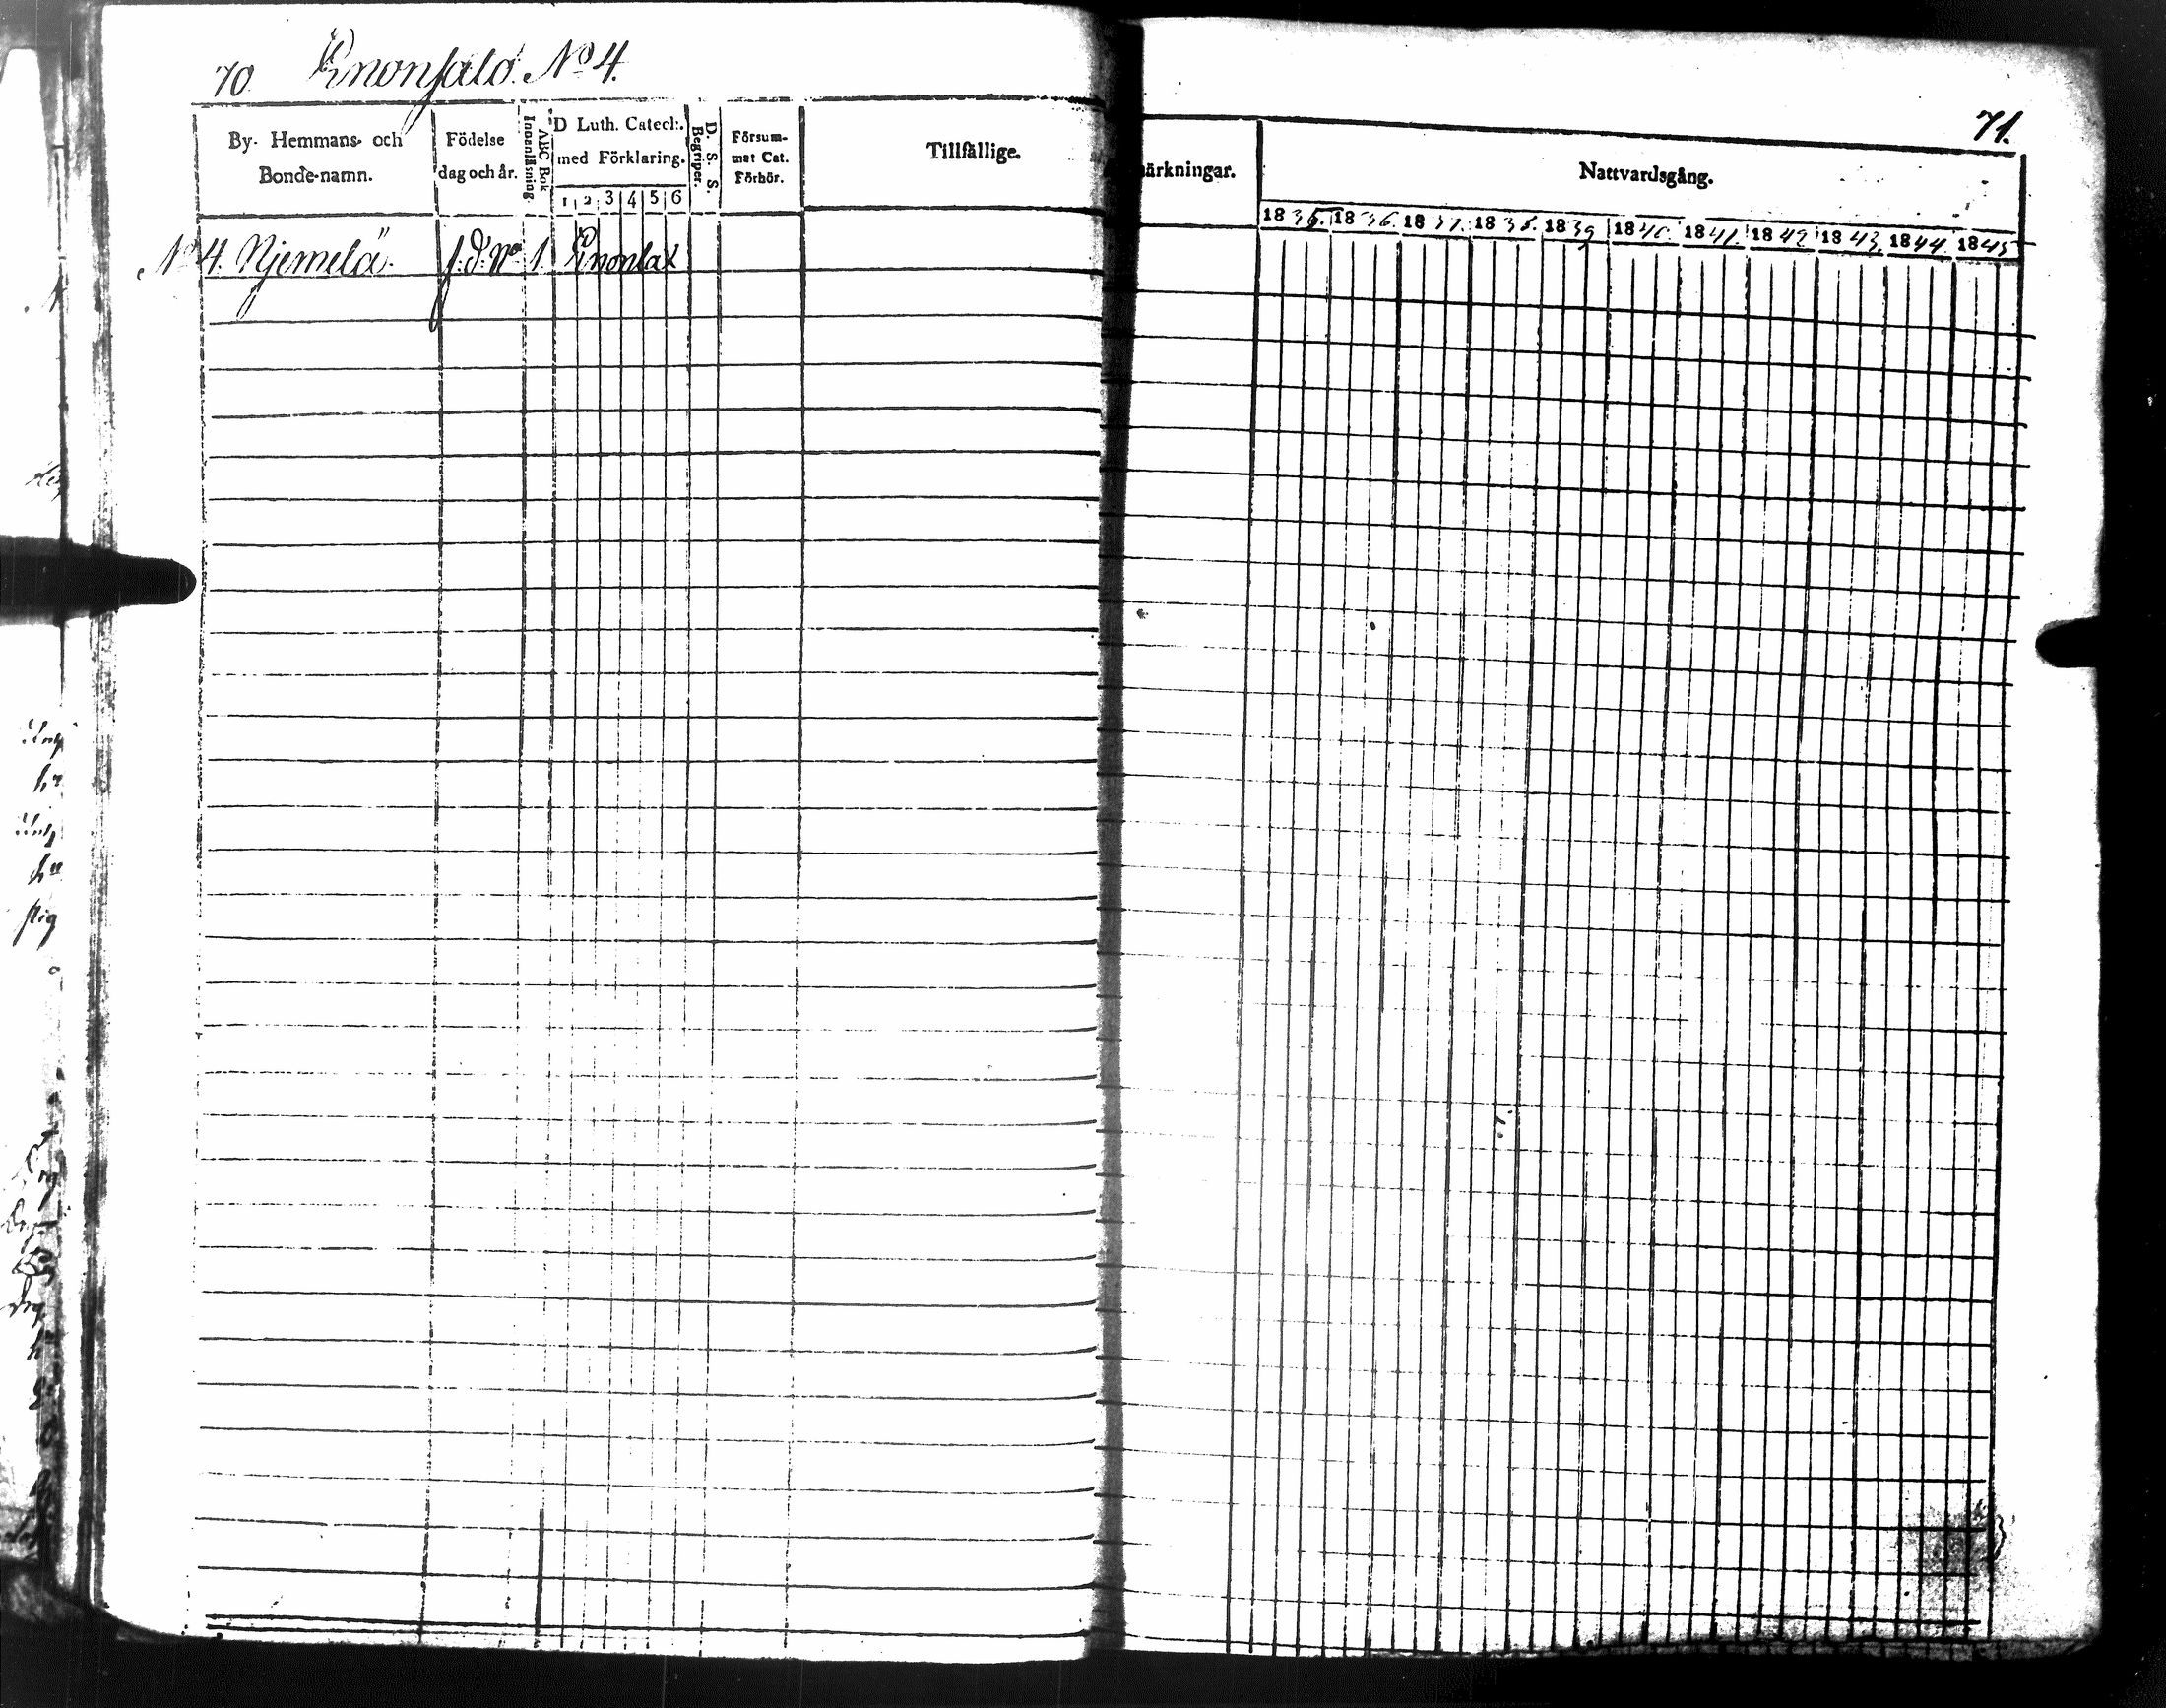 70 Enonsalo. No 4.
By- Hemmans- och Bonde-namn.
Födelse dag och år.
Innanläsning
ABC Bok
D Luth. Catech. med Förklaring.
1 2 3 4 5 6
D. S. S. Begriper.
Försummat Cat. Förhör.
Tillfällige.
No 4. Njemelä. f. d. No 1 Enonlax
71.
märkningar.
Nattvardsgång.
1835. 1836. 1837. 1838. 1839 1840. 1841. 1842 1843. 1844. 1845